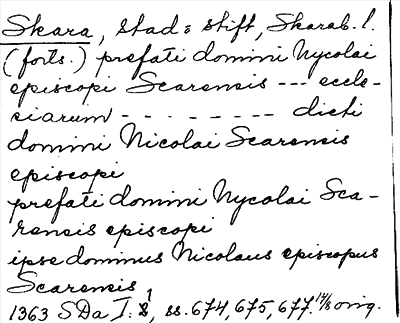 Skara, stad o stift, Skarab. l.
(forts.) prefati domini Nycolai
episcopi Scarensis --- eccle-
siarum - - - - - - - - - dicti
domini Nicolai Scarensis
episcopi
prefati domini Nycolai Sca-
rensis episcopi
ipse dominus Nicolaus episcopus
Scarensis
1363 SDa I: 1, ss. 674, 675, 677. 14/8 orig.